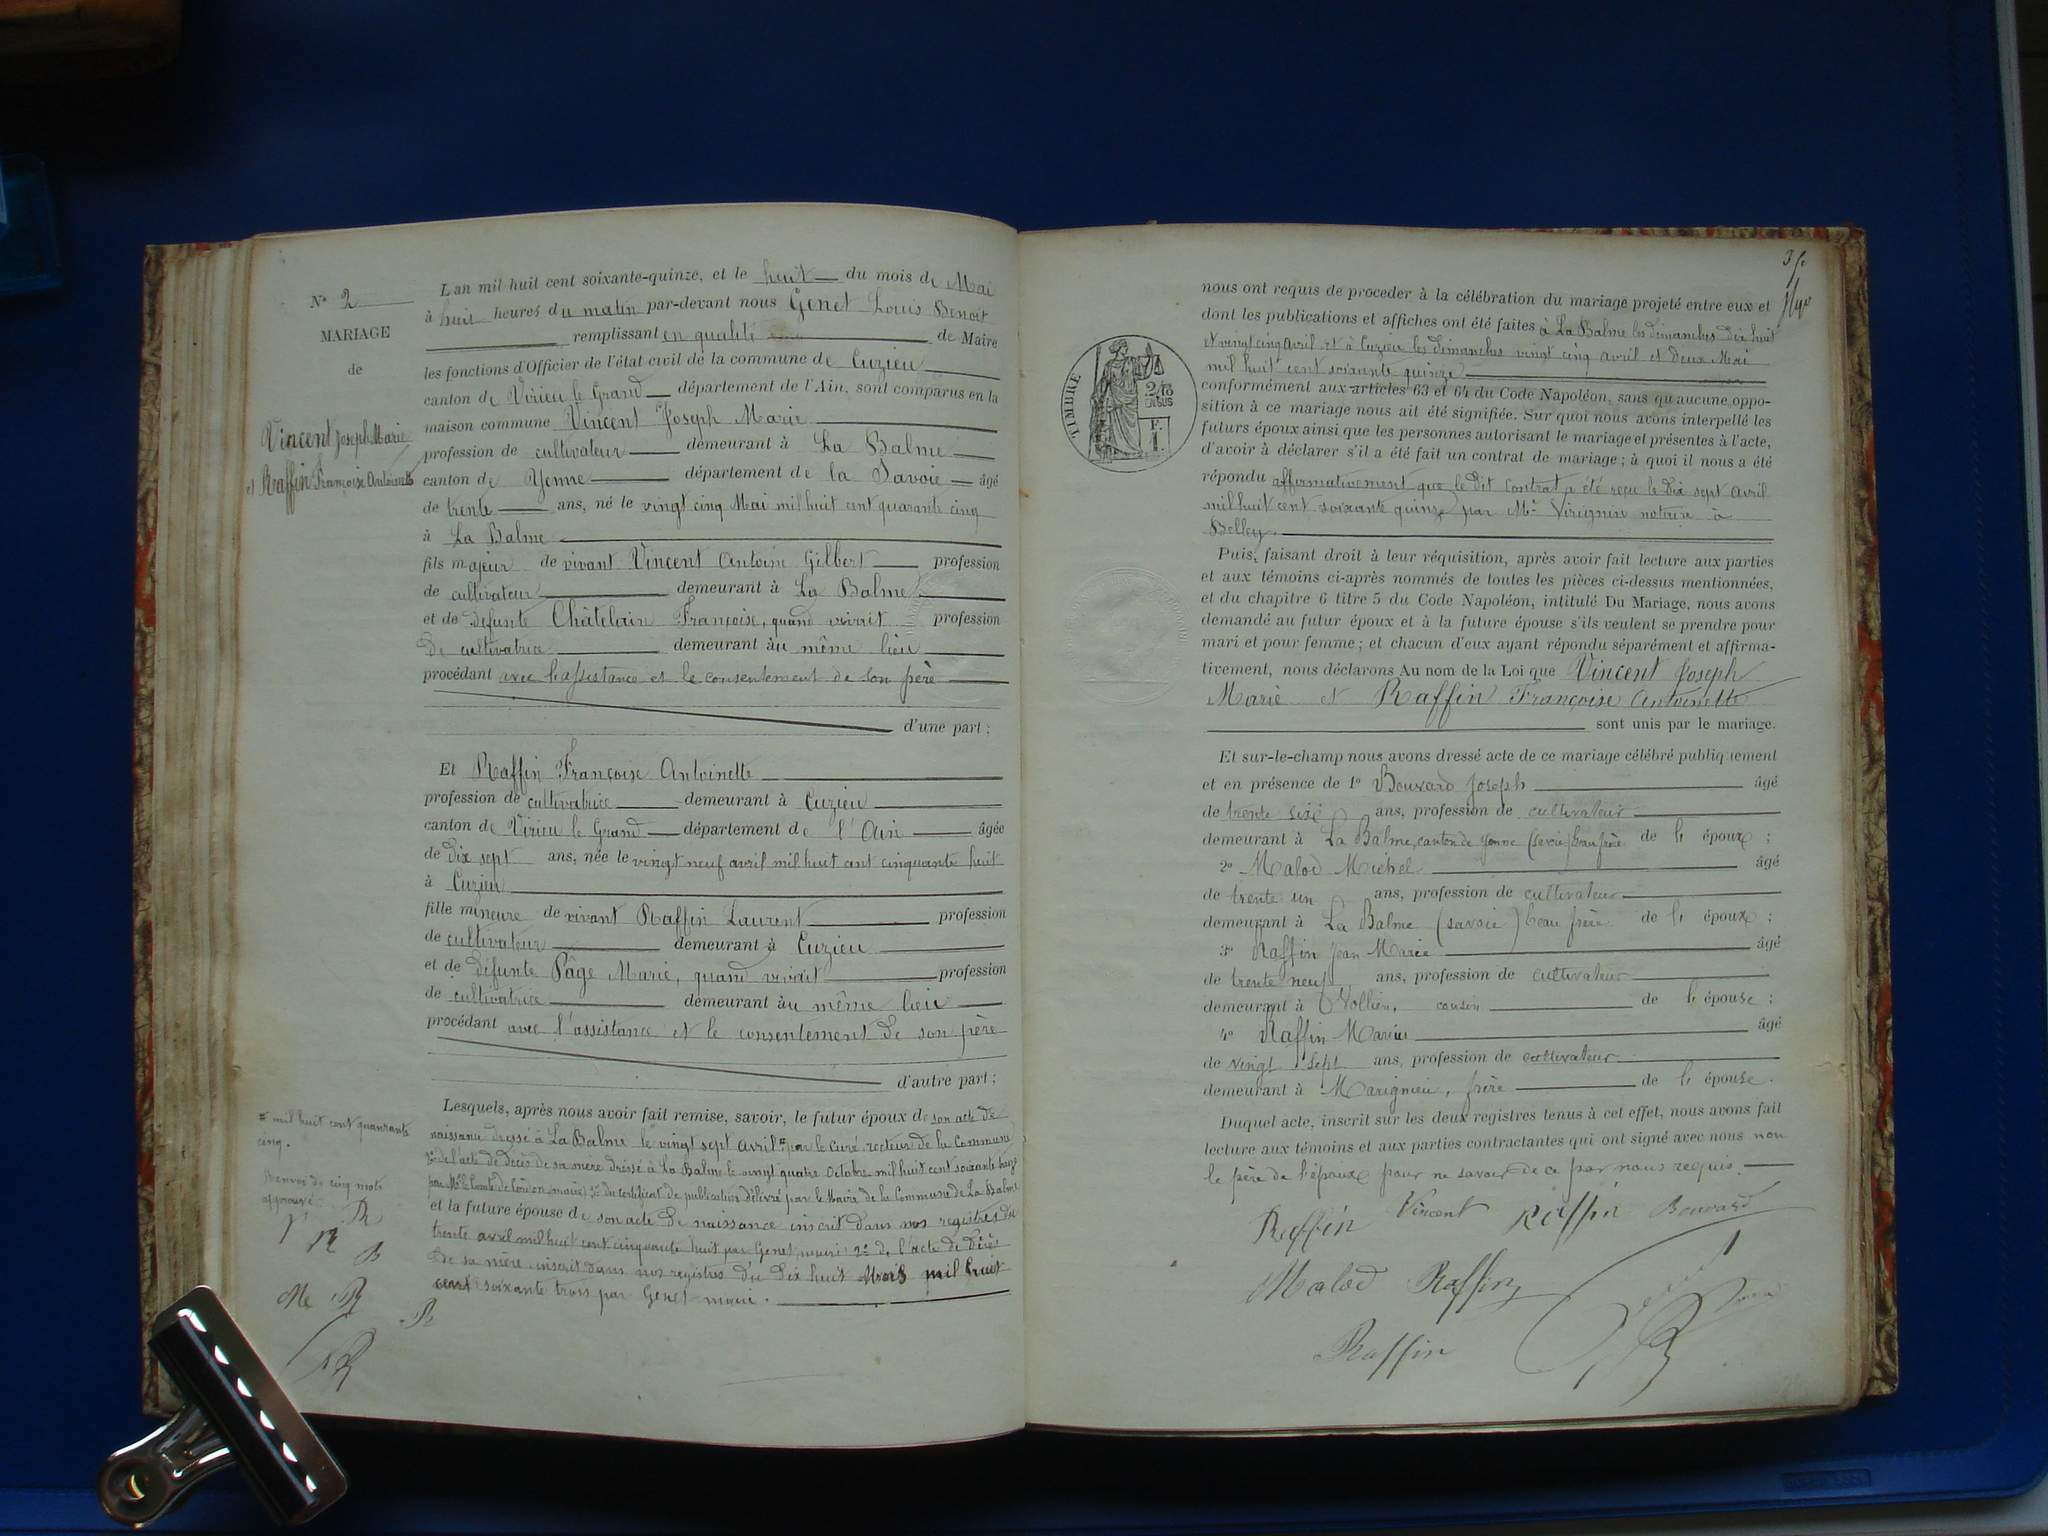 N° 2
MARIAGE
de
Vincent Joseph Marie
et Raffin Françoise Antoinette
L'an mil huit cent soixante-quinze, et le huit du mois de Mai
à huit heures du matin par-devant nous Genet Louis Benoit
remplissant en qualité de Maire
les fonctions d'Officier de l'état civil de la commune de Cuzieu
canton de Virieu le Grand département de l'Ain, sont comparus en la
maison commune Vincent Joseph Marie
profession de cultivateur demeurant à La Balme
canton de Yenne département de la Savoie âgé
de trente ans, né le vingt cinq Mai mil huit cent quarante cinq
à La Balme
fils majeur de vivant Vincent Antoine Gilbert profession
de cultivateur demeurant à La Balme
et de defunte Châtelain Françoise, quand vivait profession
De cultivatrice demeurant au même lieu
procédant avec l'assistance et le consentement de son père
d'une part;
Et Raffin Françoise Antoinette
profession de cultivatrice demeurant à Cuzieu
canton de Virieu le Grand département de l'Ain âgée
de dix sept ans, née le vingt neuf avril mil huit cent cinquante huit
à Cuzieu
fille mineure de vivant Raffin Laurent profession
de cultivateur demeurant à Cuzieu
et de défunte Pâge Marie, quand vivait profession
de cultivatrice demeurant au même lieu
procédant avec l'assistance et le consentement de son père
d'autre part;
Lesquels, après nous avoir fait remise, savoir, le futur époux de son acte de
naissance dressé à La Balme le vingt sept avril = par le Curé recteur de la Commune
2° de l'acte de Décès de sa mère dressé à La Balme le vingt quatre Octobre mil huit cent soixante treize
par Mr le Comte de maire 3° du certificat de publication délivré par le Maire de la Commune de La Balme
et la future épouse de son acte de naissance inscrit dans nos registres du
trente avril mil huit cent cinquante huit par Genet, maire 2° de l'acte de Décès
de sa mère inscrit dans nos registres du dix huit Mars mil huit
cent soixante trois par Genet maire.
= mil huit cent quarante
cinq.
Renvoi de cinq mots
approuvé
V R
R
B
M R
R
R
nous ont requis de proceder à la célébration du mariage projeté entre eux et
dont les publications et affiches ont été faites à La Balme les dimanches dix huit
et vingt cinq Avril et à Cuzieu les dimanches vingt cinq avril et deux Mai
mil huit cent soixante quinze
conformément aux articles 63 et 64 du Code Napoléon, sans qu'aucune oppo-
sition à ce mariage nous ait été signifiée. Sur quoi nous avons interpellé les
futurs époux ainsi que les personnes autorisant le mariage et présentes à l'acte,
d'avoir à déclarer s'il a été fait un contrat de mariage; à quoi il nous a été
répondu affirmativement que le dit contrat a été reçu le dix sept avril
mil huit cent soixante quinze par Me notaire à
Belley.
TIMBRE
Puis, faisant droit à leur réquisition, après avoir fait lecture aux parties
et aux témoins ci-après nommés de toutes les pièces ci-dessus mentionnées,
et du chapitre 6 titre 5 du Code Napoléon, intitulé Du Mariage, nous avons
demandé au futur époux et à la future épouse s'ils veulent se prendre pour
mari et pour femme; et chacun d'eux ayant répondu séparément et affirma-
tivement, nous déclarons Au nom de la Loi que Vincent Joseph
Marie et Raffin Françoise Antoinette
sont unis par le mariage.
Et sur-le-champ nous avons dressé acte de ce mariage célébré publiquement
et en présence de 1° Bouvard Joseph âgé
de trente six ans, profession de cultivateur
demeurant à La Balme, canton de Yenne (Savoie) beau frère de l'époux;
2° Malod Michel âgé
de trente un ans, profession de cultivateur
demeurant à La Balme (savoie) beau frère de l'époux;
3° Raffin Jean Marie âgé
de trente neuf ans, profession de cultivateur
demeurant à Vollien, cousin de l'épouse;
4° Raffin Marius âgé
de vingt sept ans, profession de cultivateur
demeurant à Marignieu, frère de l'épouse.
Duquel acte, inscrit sur les deux registres tenus à cet effet, nous avons fait
lecture aux témoins et aux parties contractantes qui ont signé avec nous non
le père de l'époux pour ne savoir de ce par nous requis.
Raffin Vincent Raffin Bouvard
Malod Raffin
Raffin